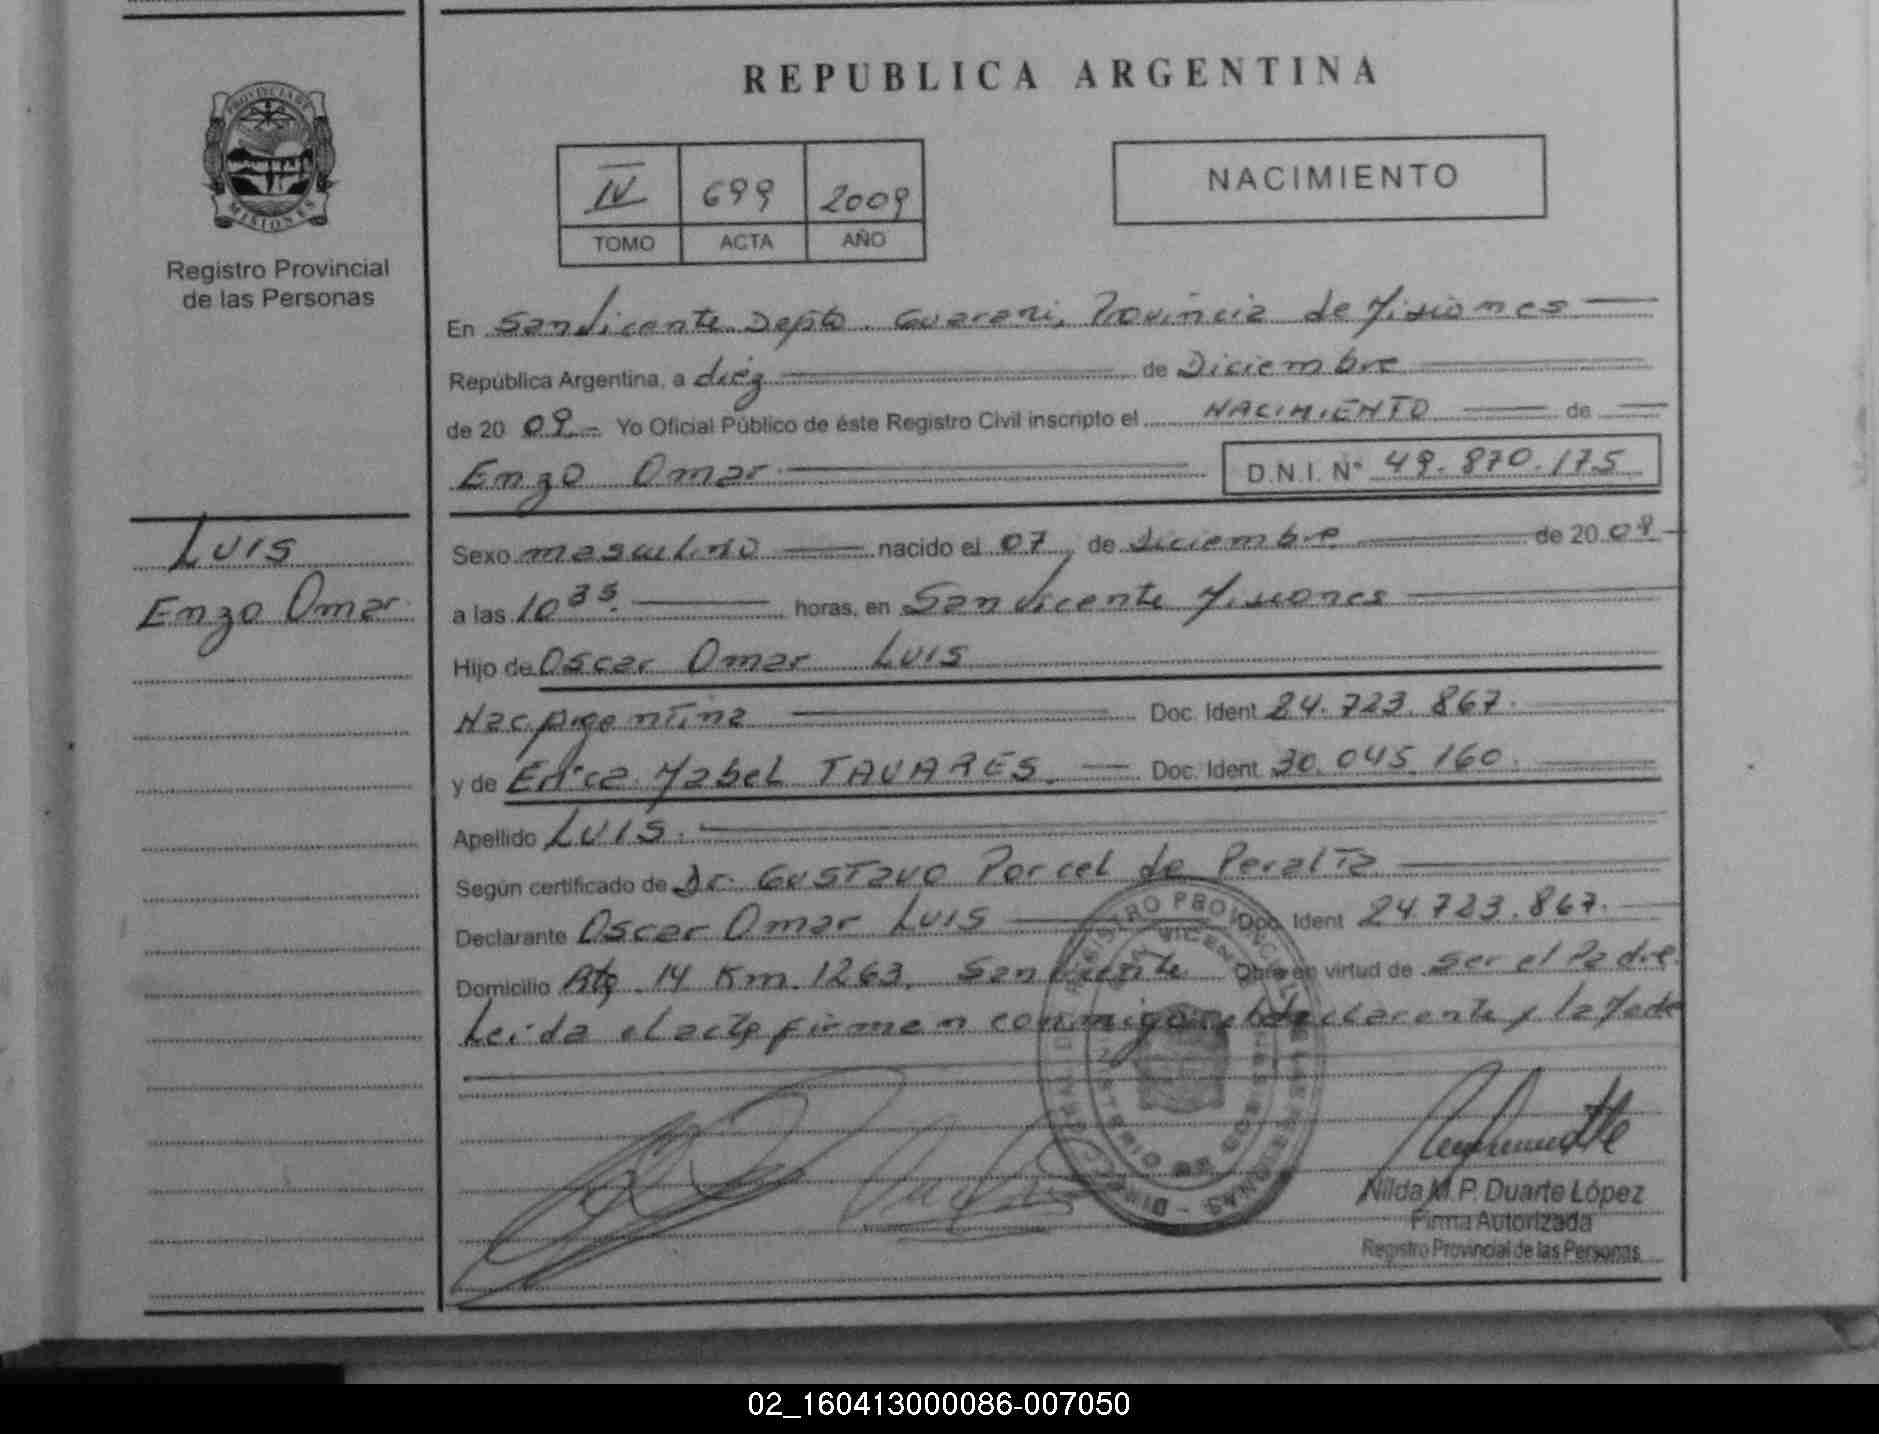 REPUBLICA ARGENTINA
PROVINCIA DE
MISIONES
Registro Provincial
de las Personas
IV 699 2009
TOMO ACTA AÑO
NACIMIENTO
En San Vicente Depto. Guarani, Provincia de Misiones
República Argentina, a diéz de Diciembre
de 20 09.- Yo Oficial Público de éste Registro Civil inscripto el NACIMIENTO de
Enzo Omar D.N.I. Nº 49.870.175
Luis
Enzo Omar.
Sexo masculino nacido el 07, de Diciembre de 20 09
a las 10 35. horas, en San Vicente Misiones
Hijo de Oscar Omar Luis
Nac. Argentina Doc. Ident 24.723.867.
y de Erica Mabel TAVARES. Doc. Ident. 30.045.160.
Apellido LUIS.
Según certificado de Dr. Gustavo Porcel de Peralta
Declarante Oscar Omar Luis Doc. Ident 24.723.867.
Domicilio Rta. 14 Km. 1263. San Vicente Obra en virtud de ser el Padre.
Leida el acta firman conmigo el declarante y la Madre
REGISTRO PROVINCIAL DE LAS PERSONAS
SAN VICENTE
MINISTERIO DE GOBIERNO
MISIONES
Nilda M.P. Duarte López
Firma Autorizada
Registro Provincial de las Personas
02_160413000086-007050